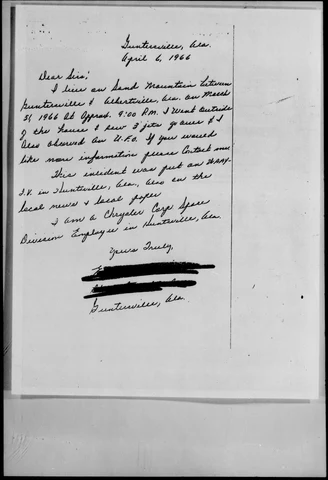 Guntersville, Ala.
April 6, 1966
Dear Sir;
I live on Sand Mountain between
Guntersville & Albertville, Ala. on March
31, 1966 At Approx. 9:00 P.M. I Went Outside
of the house & saw 3 jets go over & I
Also observed An U.F.O. If you would
like more information please Contact me.
This incident was put on
T.V. in Huntsville, Ala., Also on the
local news & local paper
I am a Chrysler Corp Space
Division Employee in Huntsville, Ala.
Yours Truly,
Guntersville, Ala.